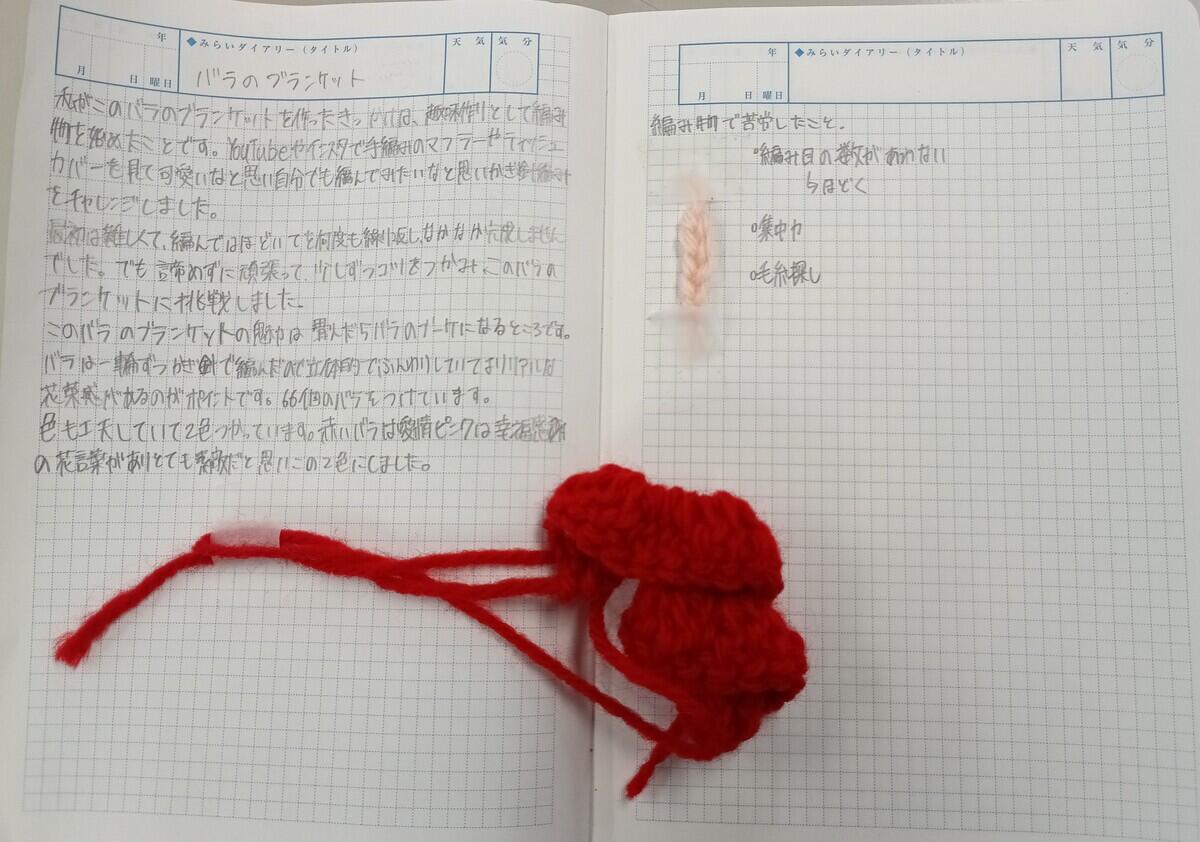 年
月 日 曜日
◆みらいダイアリー(タイトル)
天気
気分
バラのブランケット
私がこのバラのブランケットを作ったきっかけは、趣味作りとして編み
物を始めたことです。YouTubeやインスタで手編みのマフラーやティッシュ
カバーを見て可愛いなと思い自分でも編んでみたいなと思いかぎ針編み
をチャレンジしました。
最初は難しくて、編んではほどいてを何度も繰り返し、なかなか完成しません
でした。でも諦めずに頑張って、少しずつコツをつかみ、このバラの
ブランケットに挑戦しました。
このバラのブランケットの魅力は畳んだらバラのブーケになるところです。
バラは一輪ずつかぎ針で編んだので立体的でふんわりしていてよりリアルな
花束感があるのがポイントです。66個のバラをつけています。
色も工夫していて2色つかっています。赤いバラは愛情ピンクは幸福感謝
の花言葉がありとても素敵だと思いこの2色にしました。
年
月 日 曜日
◆みらいダイアリー(タイトル)
天気
気分
編み物で苦労したこと。
・編み目の数があわない
↳ほどく
・集中力
・毛糸探し